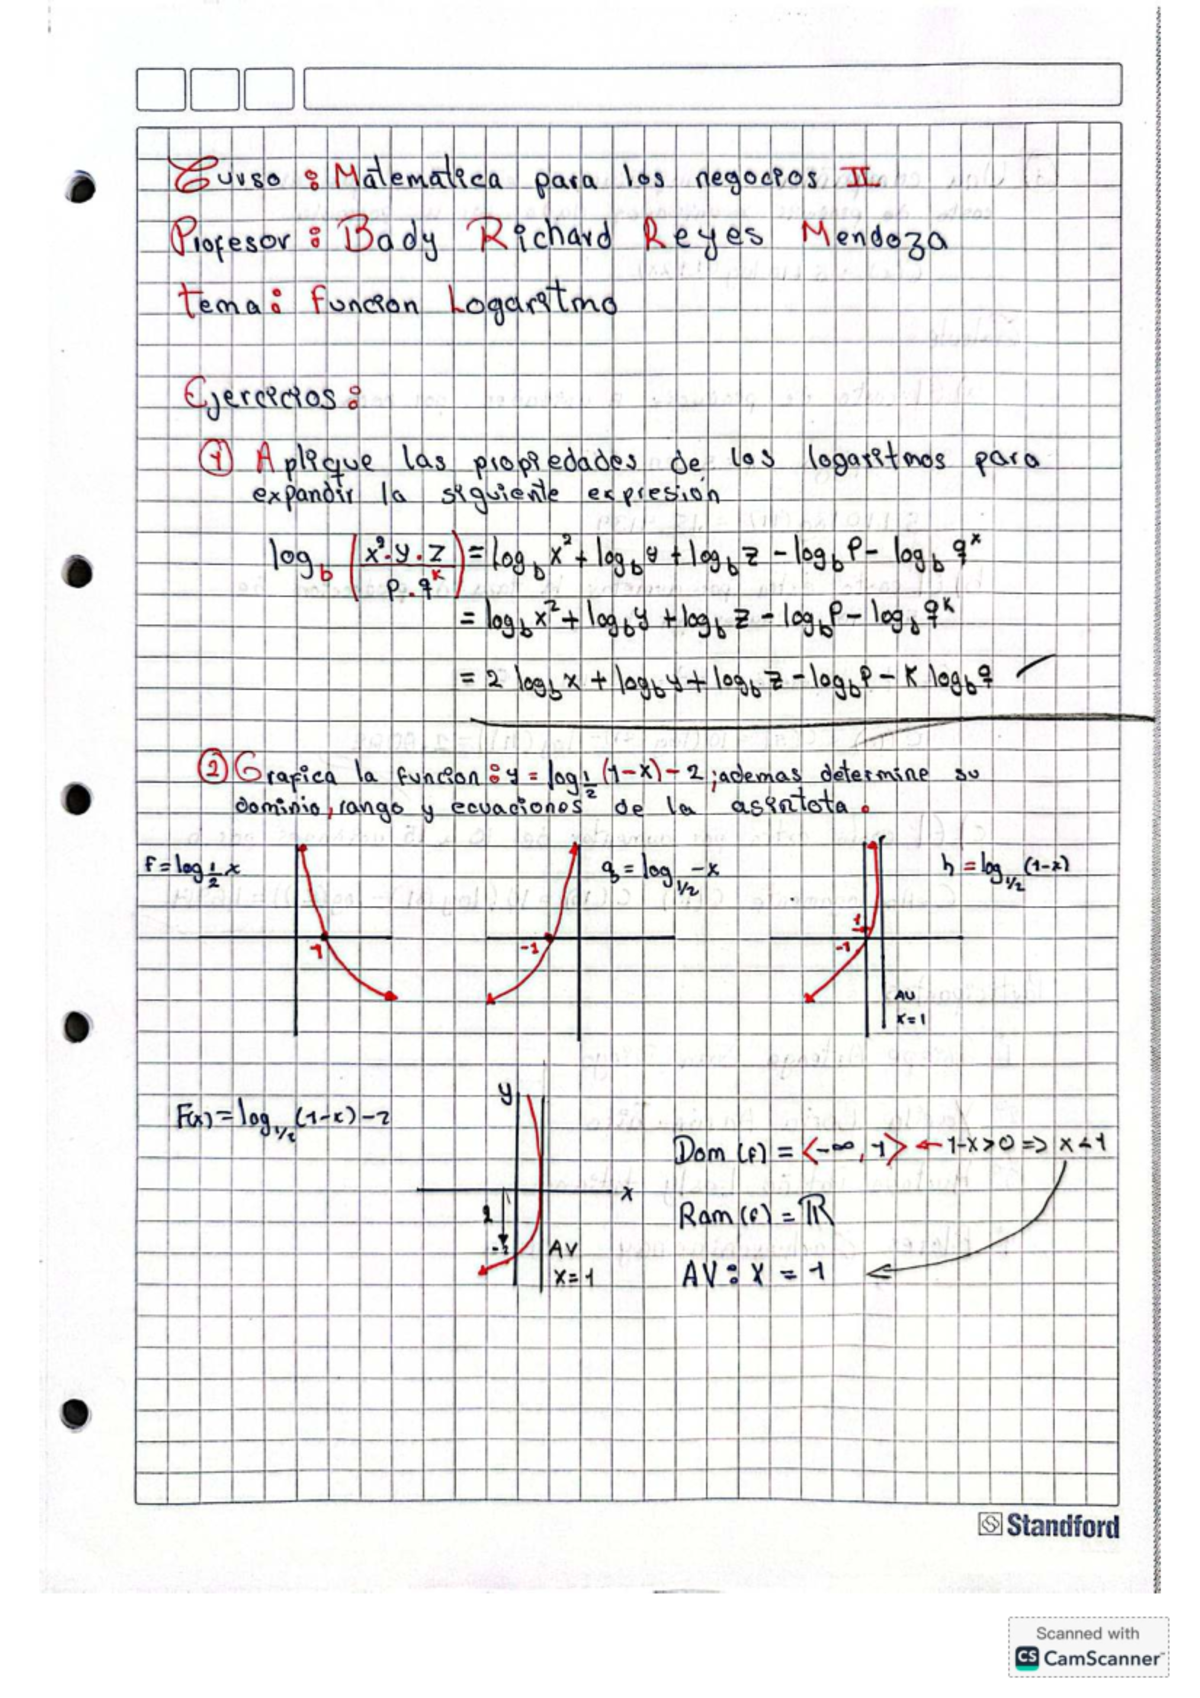 Curso: Matematica para los negocios II
Profesor: Bady Richard Reyes Mendoza
tema: funcion Logaritmo
Ejercicios:
① Aplique las propiedades de los logaritmos para
expandir la siguiente expresión
log_b (x²·y·z / p·q^k) = log_b x² + log_b y + log_b z - log_b p - log_b q^x
= log_b x² + log_b y + log_b z - log_b p - log_b q^k
= 2 log_b x + log_b y + log_b z - log_b p - k log_b q
② Grafica la funcion: y = log_1/2 (1-x) - 2; ademas determine su
dominio, rango y ecuaciones de la asintota.
f = log_1/2 x
1
g = log_1/2 -x
-1
h = log_1/2 (1-x)
1
-1
AV
x=1
F(x) = log_1/2 (1-x) - 2
y
x
2
-2
AV
x=1
Dom (f) = <-∞, 1> ← 1-x>0 => x<1
Ram (f) = ℝ
AV: X = 1
Standford
Scanned with
CS CamScanner